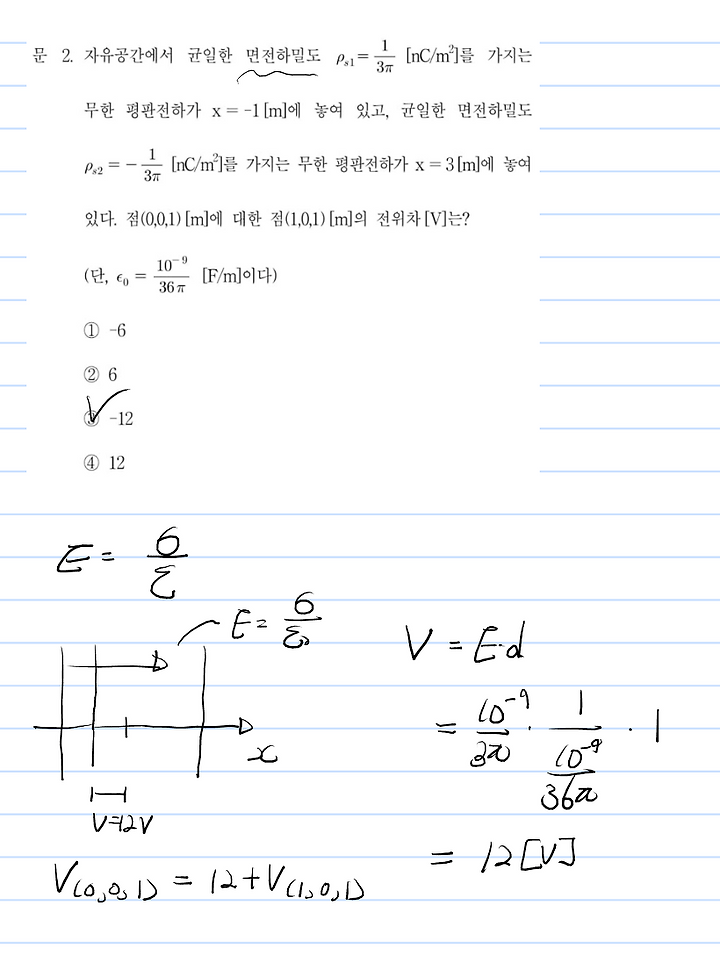 문 2. 자유공간에서 균일한 면전하밀도 ρ_s1 = 1/3π [nC/m²]를 가지는
무한 평판전하가 x = -1 [m]에 놓여 있고, 균일한 면전하밀도
ρ_s2 = - 1/3π [nC/m²]를 가지는 무한 평판전하가 x = 3 [m]에 놓여
있다. 점(0,0,1) [m]에 대한 점(1,0,1) [m]의 전위차 [V]는?
(단, ϵ_0 = 10^-9/36π [F/m]이다)
① -6
② 6
③ -12
④ 12
E = σ/ε
E = σ/ε₀
x
V=12V
V(0,0,1) = 12 + V(1,0,1)
V = E·d
= 10^-9/3π · 1/(10^-9/36π) · 1
= 12 [V]